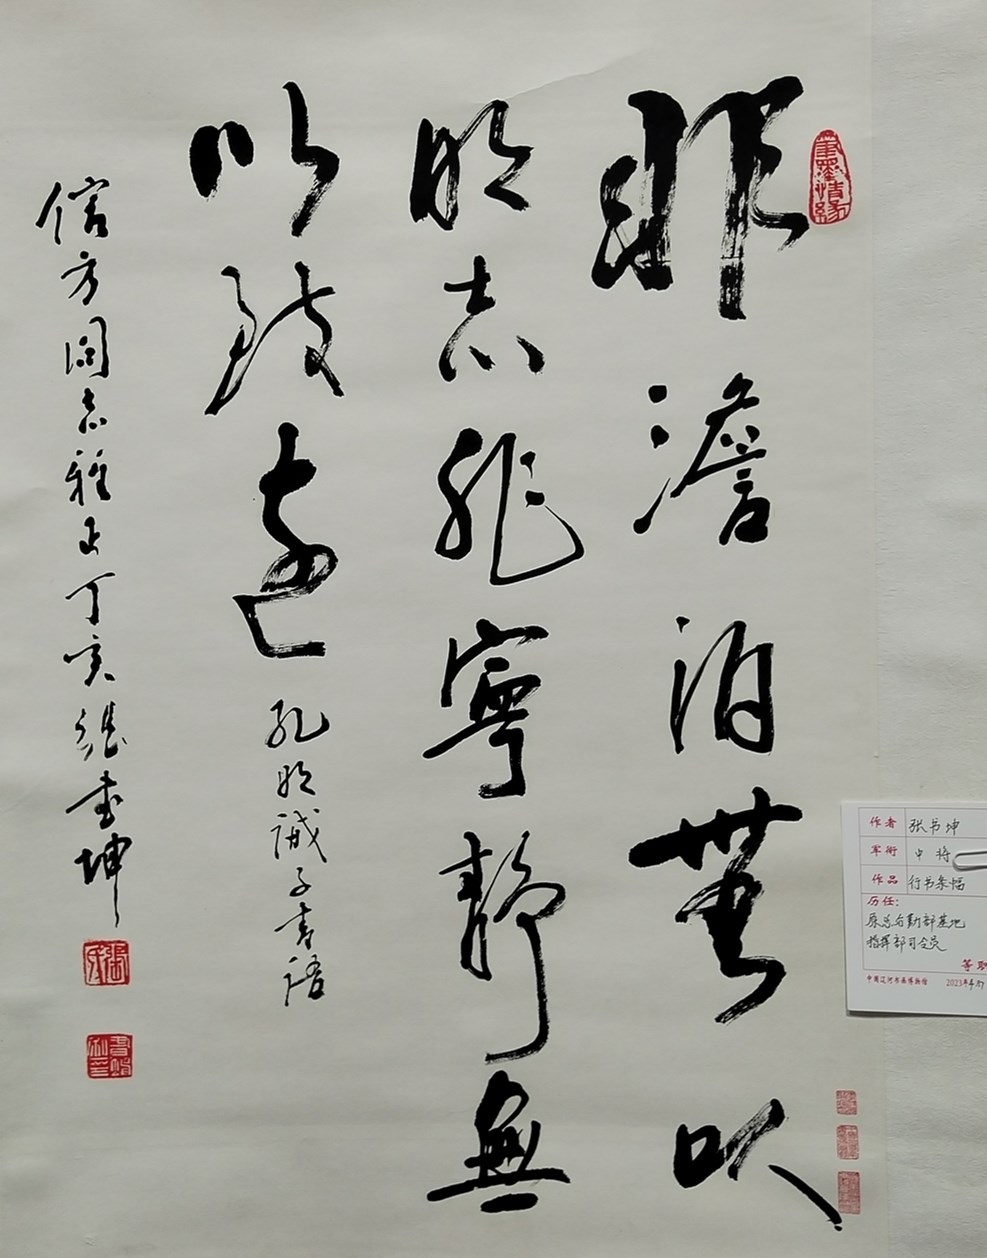 非澹泊無以
明志非寧静無
以致遠
孔明誡子書語
信方同志雅正丁亥继书坤
笔墨情缘
作者 张书坤
军衔 中将
作品 行书条幅
历任:
原总后勤部基地
指挥部司令员
等职
中国辽河书画博物馆 2023年4月